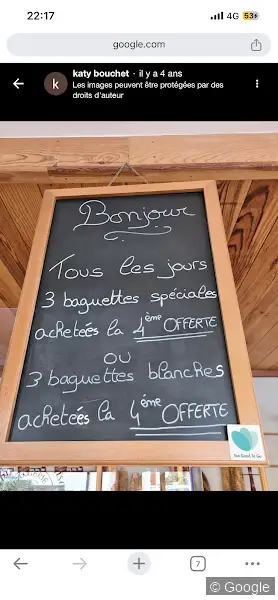 22:17
4G 53
google.com
k
katy bouchet · il y a 4 ans
Les images peuvent être protégées par des
droits d'auteur
Bonjour
Tous les jours
3 baguettes spéciales
achetées la 4ème OFFERTE
OU
3 baguettes blanches
achetées la 4ème OFFERTE
Too Good To Go
7
© Google